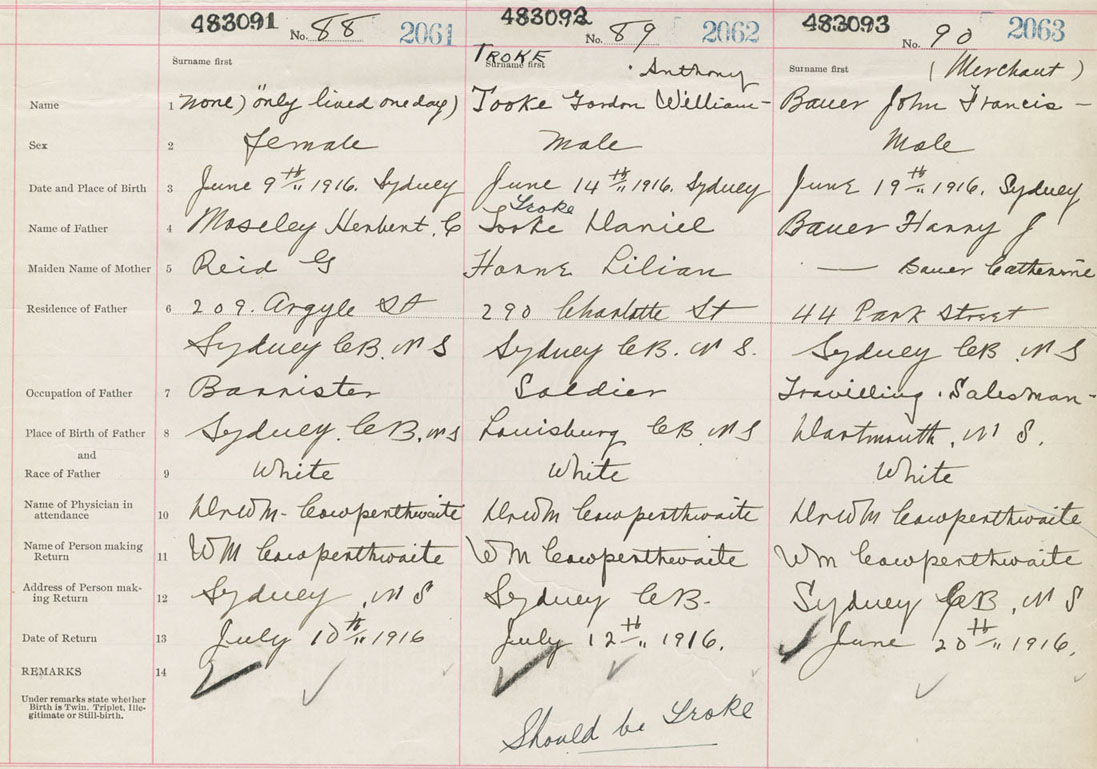 483091 483092 483093
No. 88 2061 No. 89 2062 No. 90 2063
Surname first TROKE Surname first Anthony Surname first (Merchant)
Name 1 none) "only lived one day) Tooke Gordon William - Bauer John Francis -
Sex 2 female Male Male
Date and Place of Birth 3 June 9th 1916. Sydney June 14th 1916. Sydney June 19th 1916. Sydney
Troke
Name of Father 4 Moseley Herbert. C Tooke Daniel Bauer Harry J
Maiden Name of Mother 5 Reid G Horne Lilian — Bauer Catherine
Residence of Father 6 209. Argyle St 290 Charlotte St 44 Park Street
Sydney CB. N S Sydney CB. N S. Sydney CB. N S
Occupation of Father 7 Barrister Soldier Travilling Salesman -
Place of Birth of Father 8 Sydney. CB. N S Louisburg CB. N S Dartmouth, N S.
and
Race of Father 9 White White White
Name of Physician in attendance 10 Dr WM - Cowperthwaite Dr WM Cowperthwaite Dr WM Cowperthwaite
Name of Person making Return 11 WM Cowperthwaite WM Cowperthwaite Wm Cowperthwaite
Address of Person making Return 12 Sydney, N S Sydney CB - Sydney CB, N S
Date of Return 13 July 10th 1916 July 12th 1916. June 20th 1916.
REMARKS 14
Under remarks state whether
Birth is Twin, Triplet, Ille-
gitimate or Still-birth.
Should be Troke